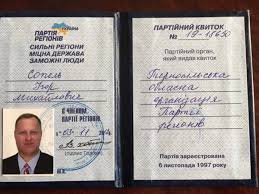 УКРАЇНА
ПАРТІЯ
РЕГІОНІВ
СИЛЬНІ РЕГІОНИ
МІЦНА ДЕРЖАВА
ЗАМОЖНІ ЛЮДИ
Сополь
Ігор
Михайлович
Є ЧЛЕНОМ
ПАРТІЇ РЕГІОНІВ
ПАРТІЙНИЙ КВИТОК
№ 19-18650
Партійний орган,
який видав квиток
Тернопільська
обласна
організація
Партії
регіонів
Партія зареєстрована
6 листопада 1997 року